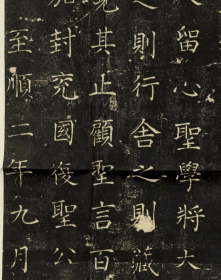 留心聖學將大
之則行舍之則藏
見其止顧聖言百
加封兖國復聖公
至順二年九月